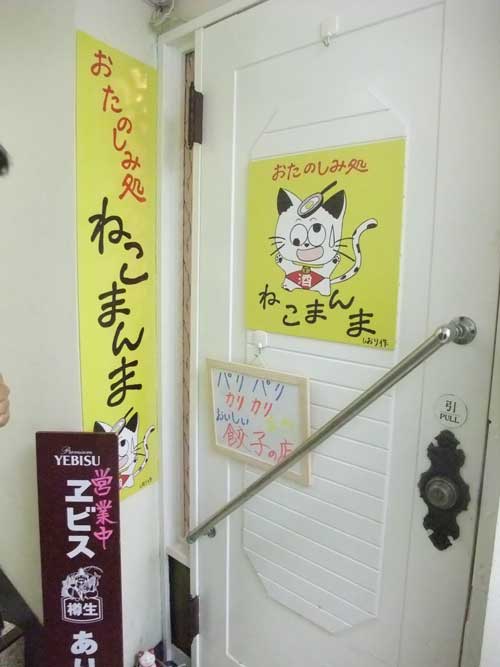 おたのしみ処
ねこまんま
おたのしみ処
酒
ねこまんま
しおり作
パリパリ
カリカリ
おいしい
餃子の店
引
PULL
Premium
YEBISU
ヱビス
営業中
樽生
あり